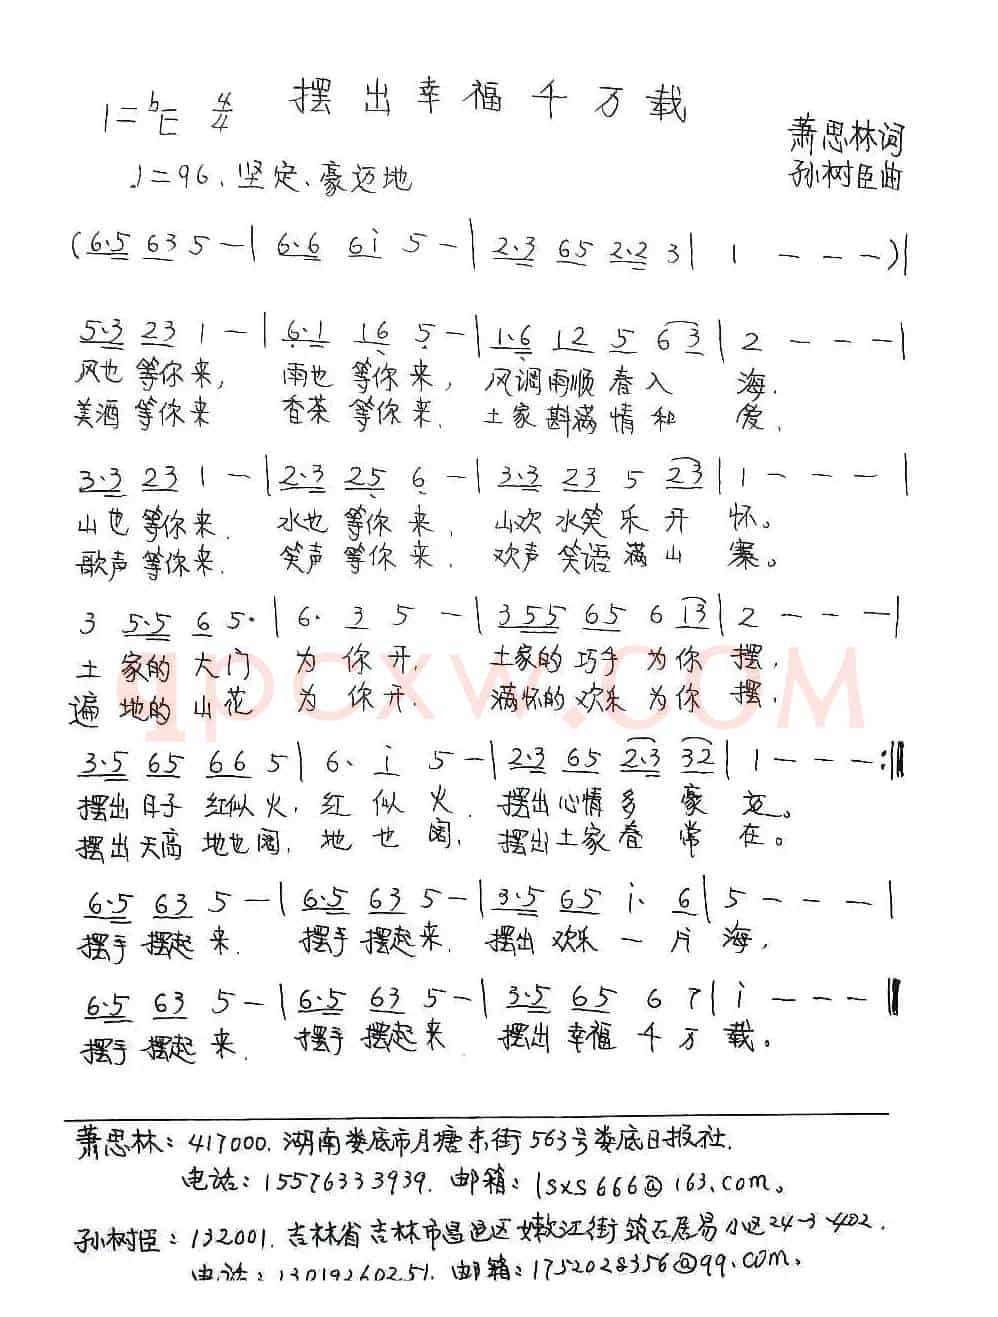 摆出幸福千万载
1=♭E 4/4
♩=96、坚定、豪迈地
萧思林词
孙树臣曲
(6·5 63 5 - | 6·6 6i 5 - | 2·3 65 2·2 3 | 1 - - - )|
5·3 23 1 - | 6·1 16 5 - | 1·6 12 5 63 | 2 - - - |
风也等你来, 雨也等你来, 风调雨顺春入海.
美酒等你来 香茶等你来. 土家斟满情和爱.
3·3 23 1 - | 2·3 25 6 - | 3·3 23 5 23 | 1 - - - |
山也等你来. 水也等你来, 山欢水笑乐开怀。
歌声等你来. 笑声等你来. 欢声笑语满山寨。
3 5·5 6 5· | 6· 3 5 - | 355 65 6 i3 | 2 - - - |
土家的大门为你开. 土家的巧手为你摆,
遍地的山花为你开. 满怀的欢乐为你摆,
qpcxw.com
3·5 65 66 5 | 6· i 5 - | 2·3 65 2·3 32 | 1 - - - :‖
摆出日子红似火, 红似火. 摆出心情多豪迈。
摆出天高地也阔, 地也阔, 摆出土家春常在。
6·5 63 5 - | 6·5 63 5 - | 3·5 65 i· 6 | 5 - - - |
摆手摆起来. 摆手摆起来. 摆出欢乐一片海,
6·5 63 5 - | 6·5 63 5 - | 3·5 65 6 7 | i - - - ‖
摆手摆起来. 摆手摆起来 摆出幸福千万载。
萧思林: 417000. 湖南娄底市月塘东街563号娄底日报社.
电话: 15576333939. 邮箱: lsxs666@163.com。
孙树臣: 132001. 吉林省吉林市昌邑区嫩江街筑石居易小区24-3-402.
电话: 13019260251. 邮箱: 1752028356@qq.com。